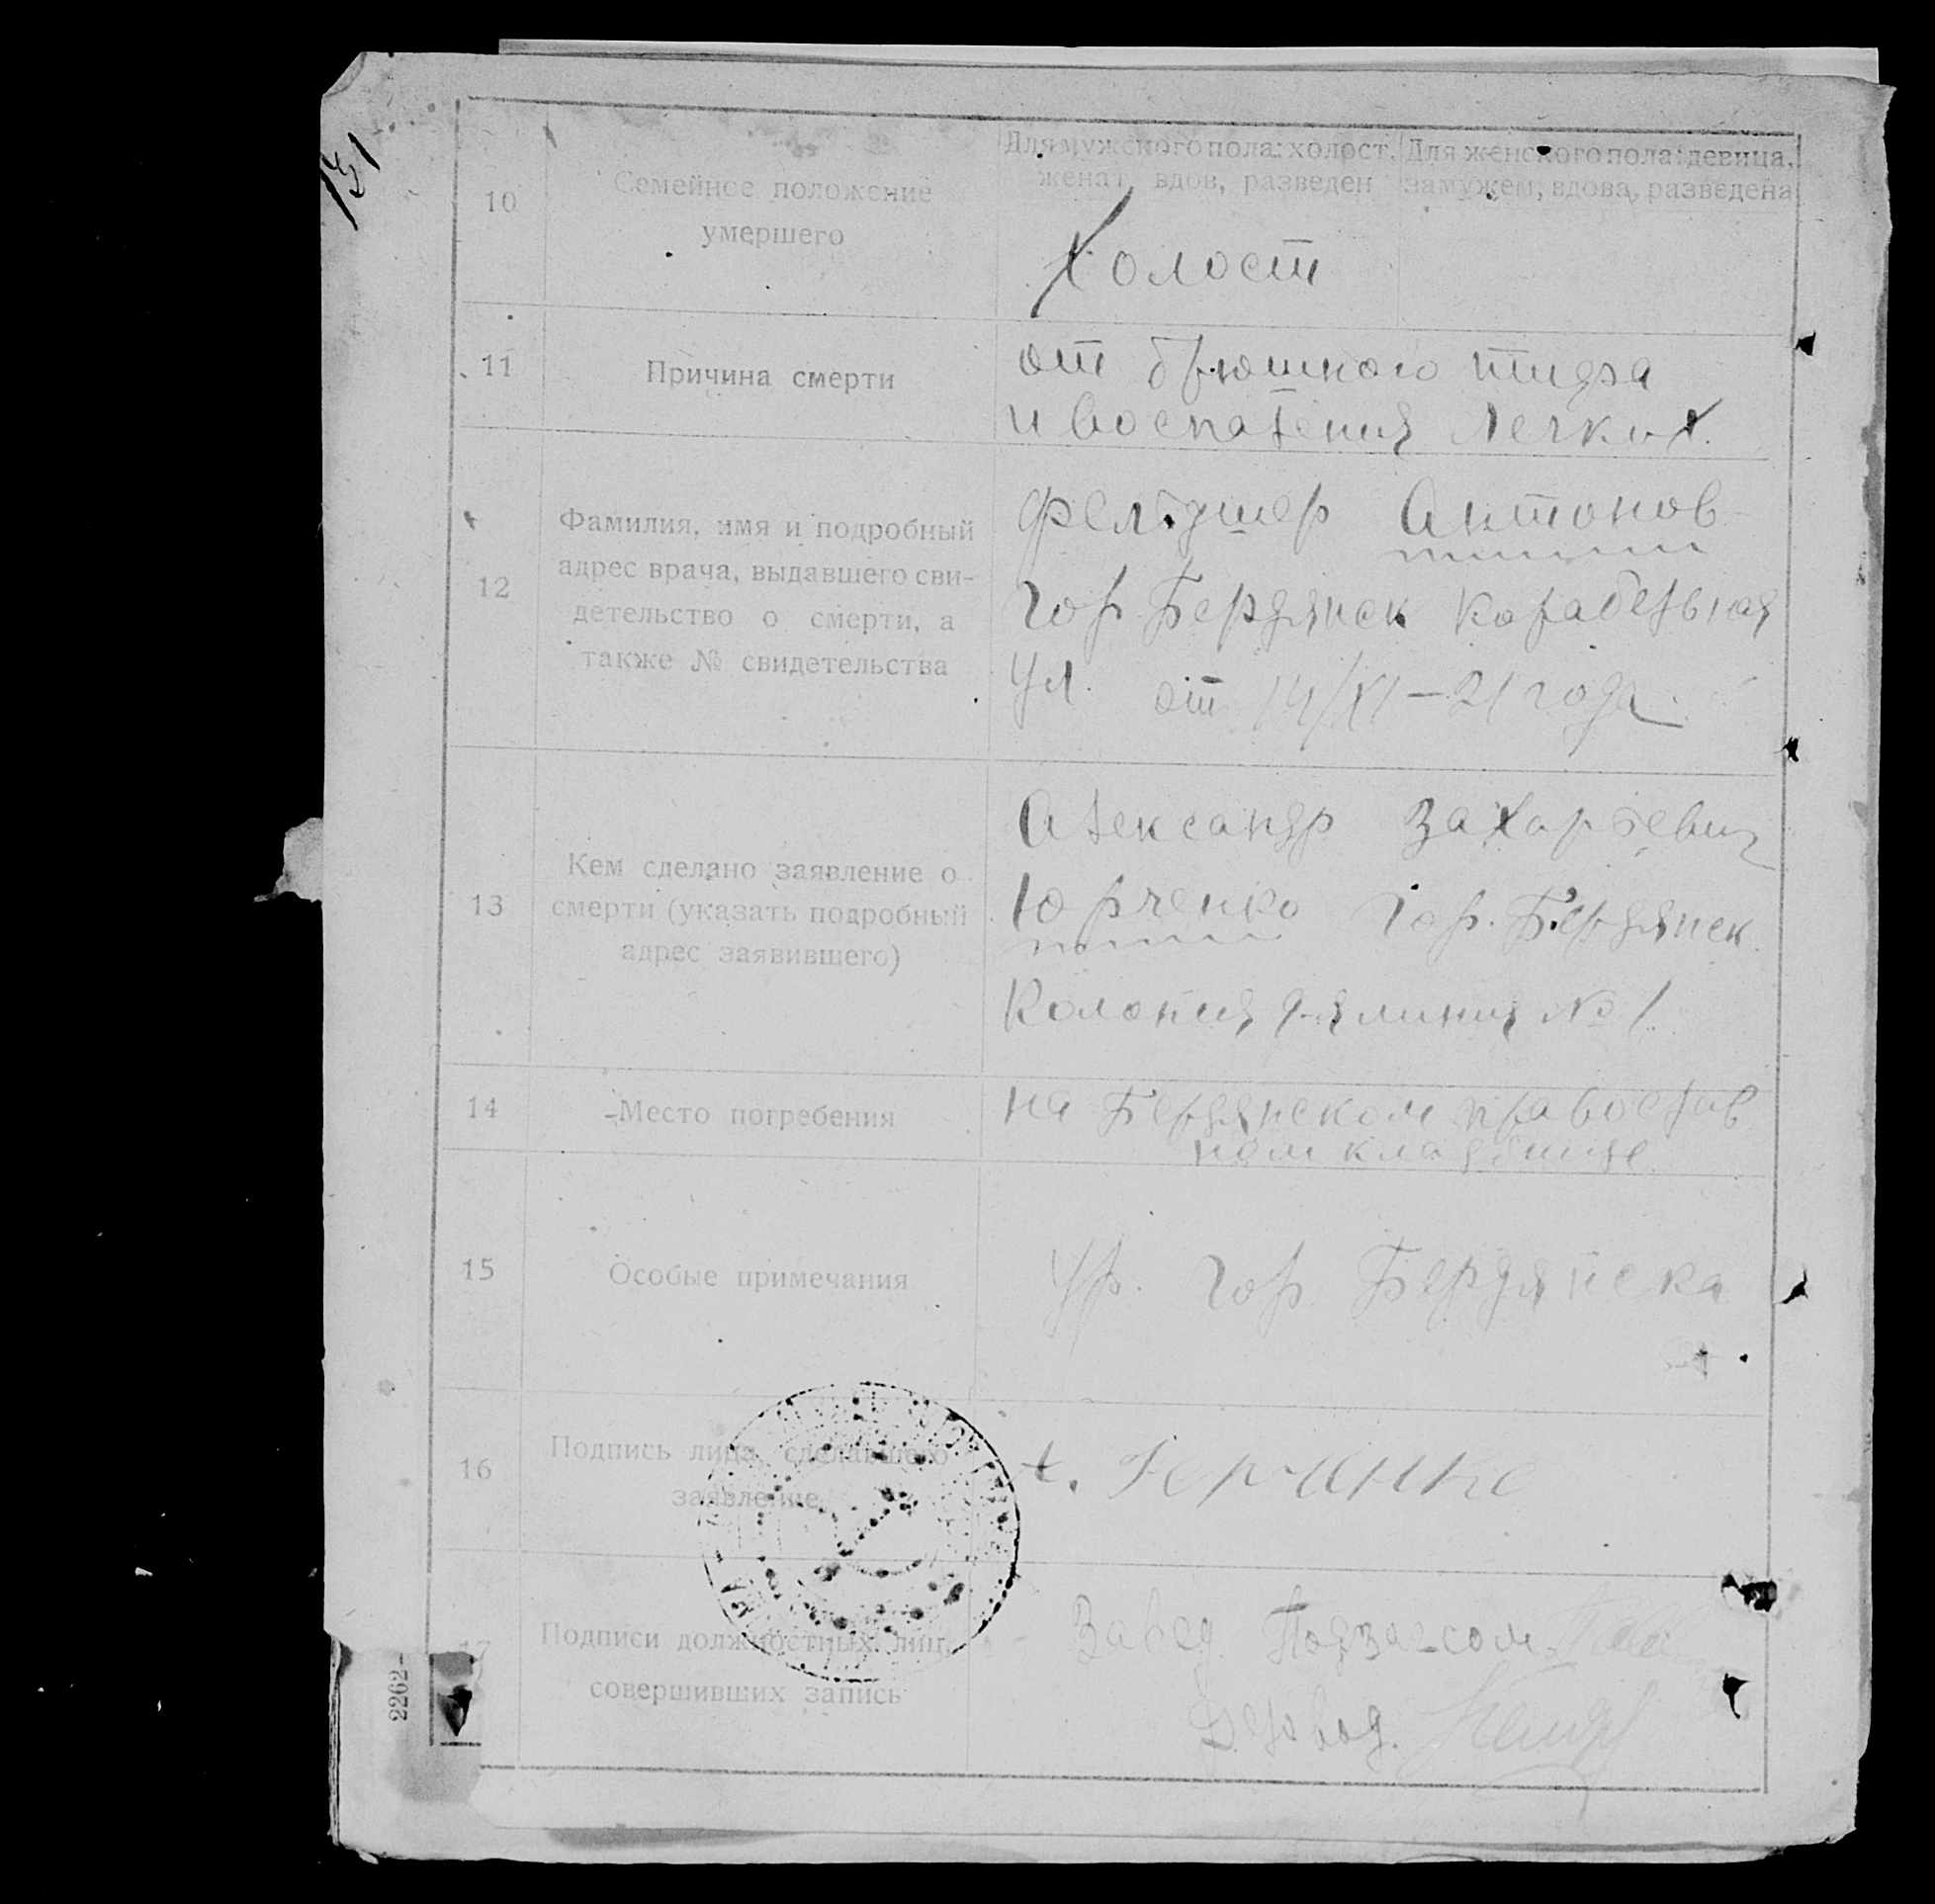 151
10
Семейное положение
умершего
Для мужского пола: холост,
женат, вдов, разведен
Для женского пола: девица,
замужем, вдова, разведена
Холост
11
Причина смерти
от брюшного тифа
и воспаления легких.
12
Фамилия, имя и подробный
адрес врача, выдавшего сви-
детельство о смерти, а
также № свидетельства
фельдшер Антонов
гор. Бердянск Корабельная
ул. от 14/XI-21 года
13
Кем сделано заявление о
смерти (указать подробный
адрес заявившего)
Александр Захарьевич
Юрченко гор. Бердянск
Колония линия № 1
14
Место погребения
на Бердянском православ
ном кладбище
15
Особые примечания
Ур. гор. Бердянска
16
Подпись лица, сделавшего
заявление
17
Подписи должностных лиц,
совершивших запись
Завед. Подзагсом
Деловод.
2262-